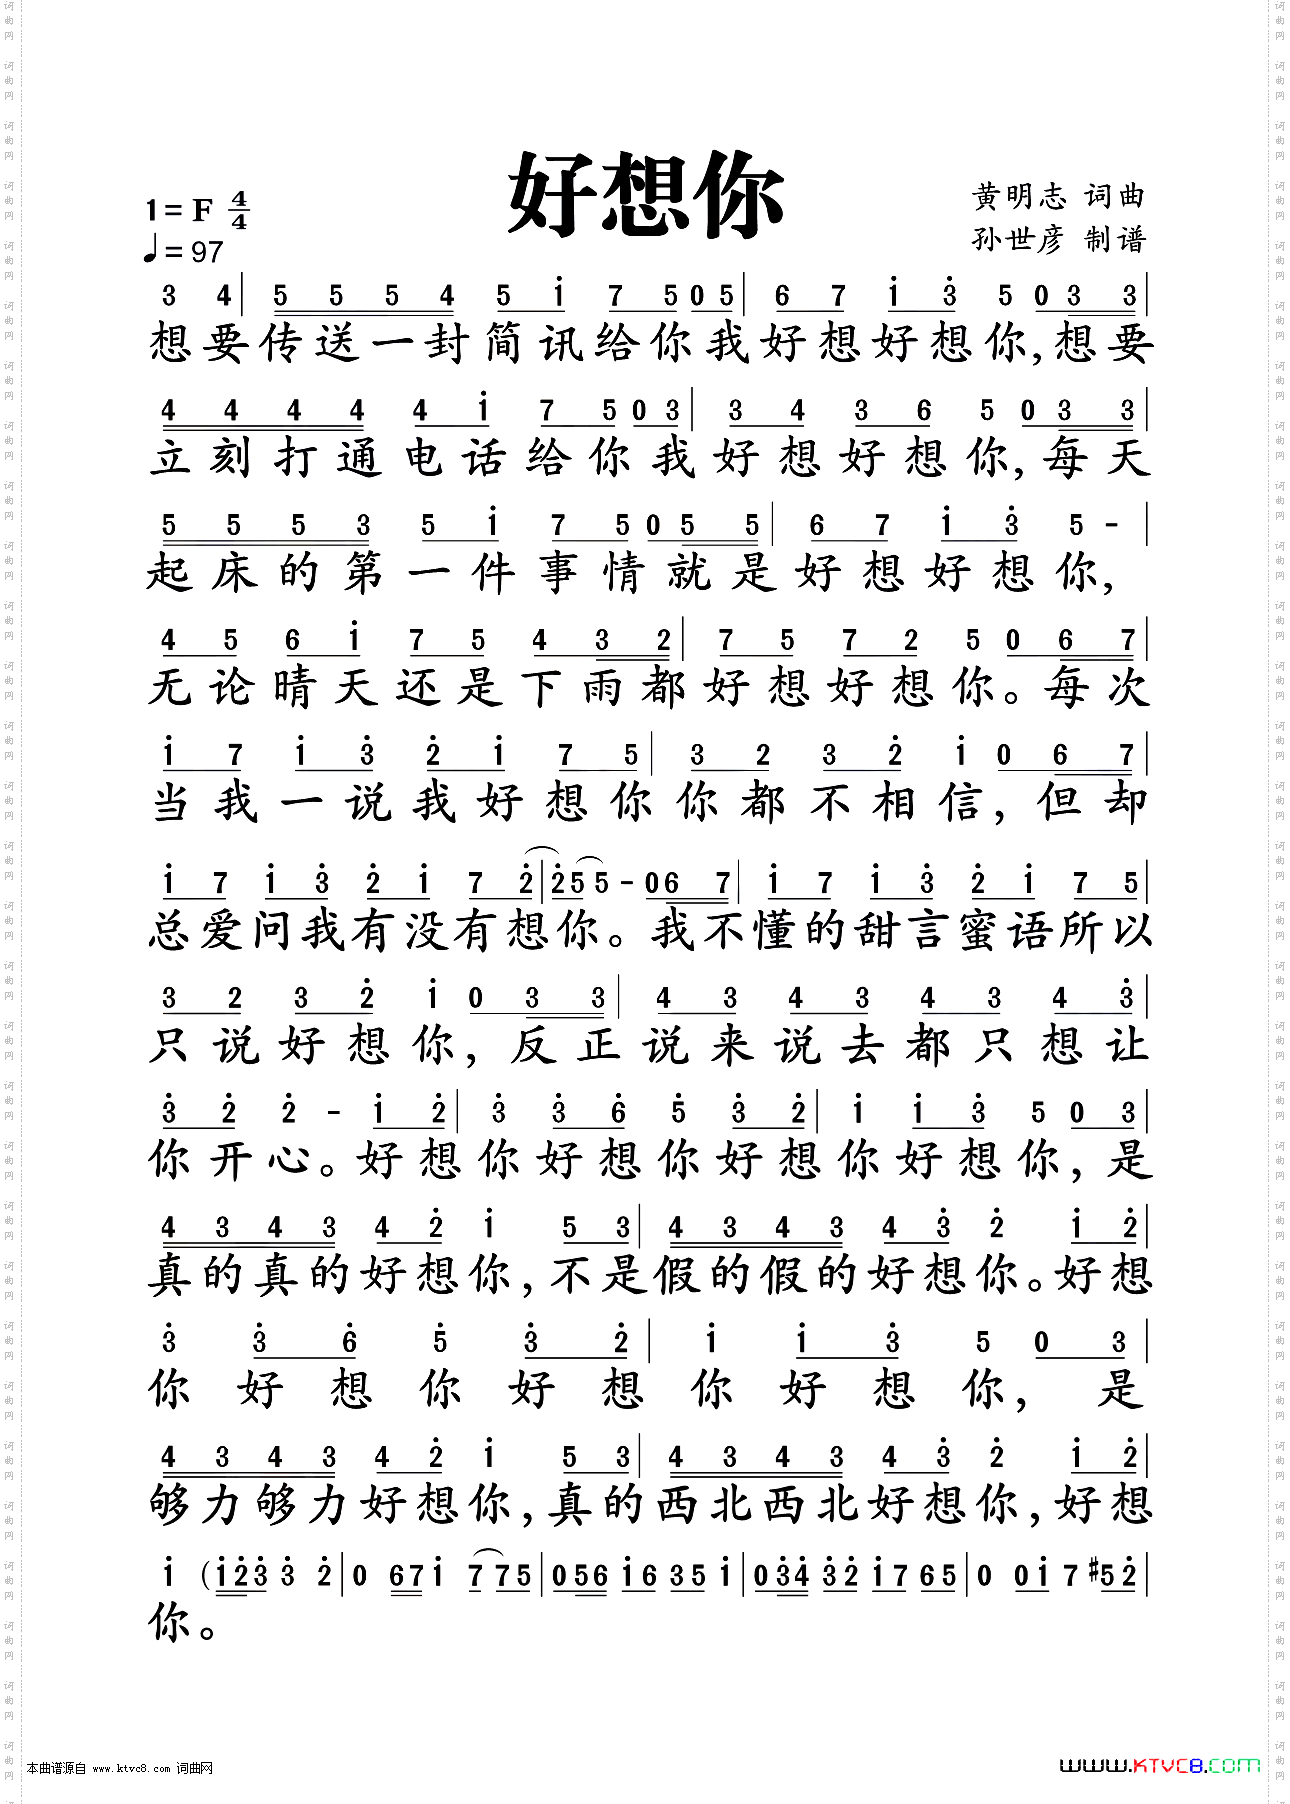 好想你
1=F 4/4
♩=97
黄明志 词曲
孙世彦 制谱
3 4 | 5 5 5 4 5 i 7 5 0 5 | 6 7 i 3̇ 5 0 3 3 |
想要传送一封简讯给你我好想好想你,想要
4 4 4 4 4 i 7 5 0 3 | 3 4 3 6 5 0 3 3 |
立刻打通电话给你我好想好想你,每天
5 5 5 3 5 i 7 5 0 5 5 | 6 7 i 3̇ 5 - |
起床的第一件事情就是好想好想你,
4 5 6 i 7 5 4 3 2 | 7 5 7 2 5 0 6 7 |
无论晴天还是下雨都好想好想你。每次
i 7 i 3̇ 2̇ i 7 5 | 3 2 3 2̇ i 0 6 7 |
当我一说我好想你你都不相信,但却
i 7 i 3̇ 2̇ i 7 2̇ | 2̇ 5 5 - 0 6 7 | i 7 i 3̇ 2̇ i 7 5 |
总爱问我有没有想你。我不懂的甜言蜜语所以
3 2 3 2̇ i 0 3 3 | 4 3 4 3 4 3 4 3̇ |
只说好想你,反正说来说去都只想让
3̇ 2̇ 2̇ - i 2̇ | 3̇ 3̇ 6̇ 5̇ 3̇ 2̇ | i i 3̇ 5 0 3 |
你开心。好想你好想你好想你好想你,是
4 3 4 3 4 2̇ i 5 3 | 4 3 4 3 4 3̇ 2̇ i 2̇ |
真的真的好想你,不是假的假的好想你。好想
3̇ 3̇ 6̇ 5̇ 3̇ 2̇ | i i 3̇ 5 0 3 |
你好想你好想你好想你,是
4 3 4 3 4 2̇ i 5 3 | 4 3 4 3 4 3̇ 2̇ i 2̇ |
够力够力好想你,真的西北西北好想你,好想
i (i 2̇ 3̇ 3̇ 2̇ | 0 6 7 i 7 7 5 | 0 5 6 i 6 3 5 i | 0 3̇ 4̇ 3̇ 2̇ i 7 6 5 | 0 0 i 7 #5 2̇ |
你。
本曲谱源自 www.ktvc8.com 词曲网
www.KTVC8.COM